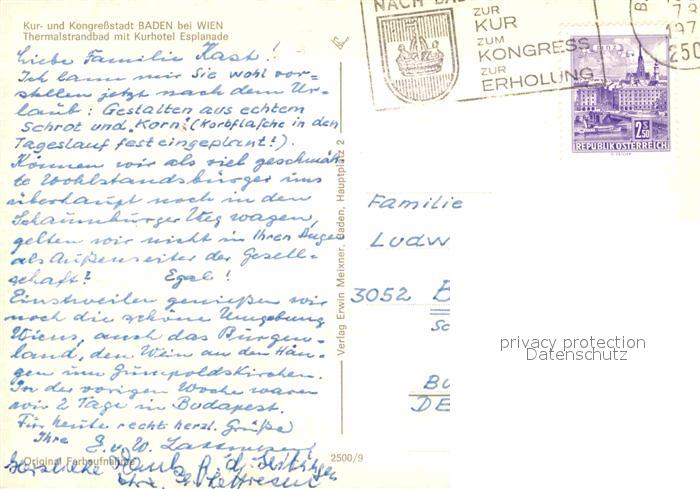 Kur- und Kongreßstadt BADEN bei WIEN
Thermalstrandbad mit Kurhotel Esplanade
Liebe Familie Kast!
Ich kann mir Sie wohl vor=
stellen jetzt nach dem Ur=
laub: Gestalten aus echtem
Schrot und „Korn“ (Korbflasche in den
Tageslauf fest eingeplant!).
Können wir als viel geschmäh=
te Wohlstandsbürger uns
überhaupt noch in den
Schaumburger Weg wagen,
gelten wir nicht in Ihren Augen
als Außenseiter der Gesell=
schaft? Egal!
Einstweilen genießen wir
noch die schöne Umgebung
Wiens, auch das Burgen-
land, den Wein an den Hän-
gen um Gumpoldskirchen.
In der vorigen Woche waren
wir 2 Tage in Budapest.
Für heute rechts herzl. Grüße
Ihre E. u. W.
Herzliche
Original Farbaufnahme
2500/9
Verlag Erwin Meixner, Baden, Hauptplatz 2
NACH BAD
ZUR
KUR
ZUM
KONGRESS
ZUR
ERHOLUNG
B
197
250
LINZ
2.50
S
REPUBLIK ÖSTERREICH
Familie
Ludw
3052 B
Sc
BU
DE
privacy protection
Datenschutz